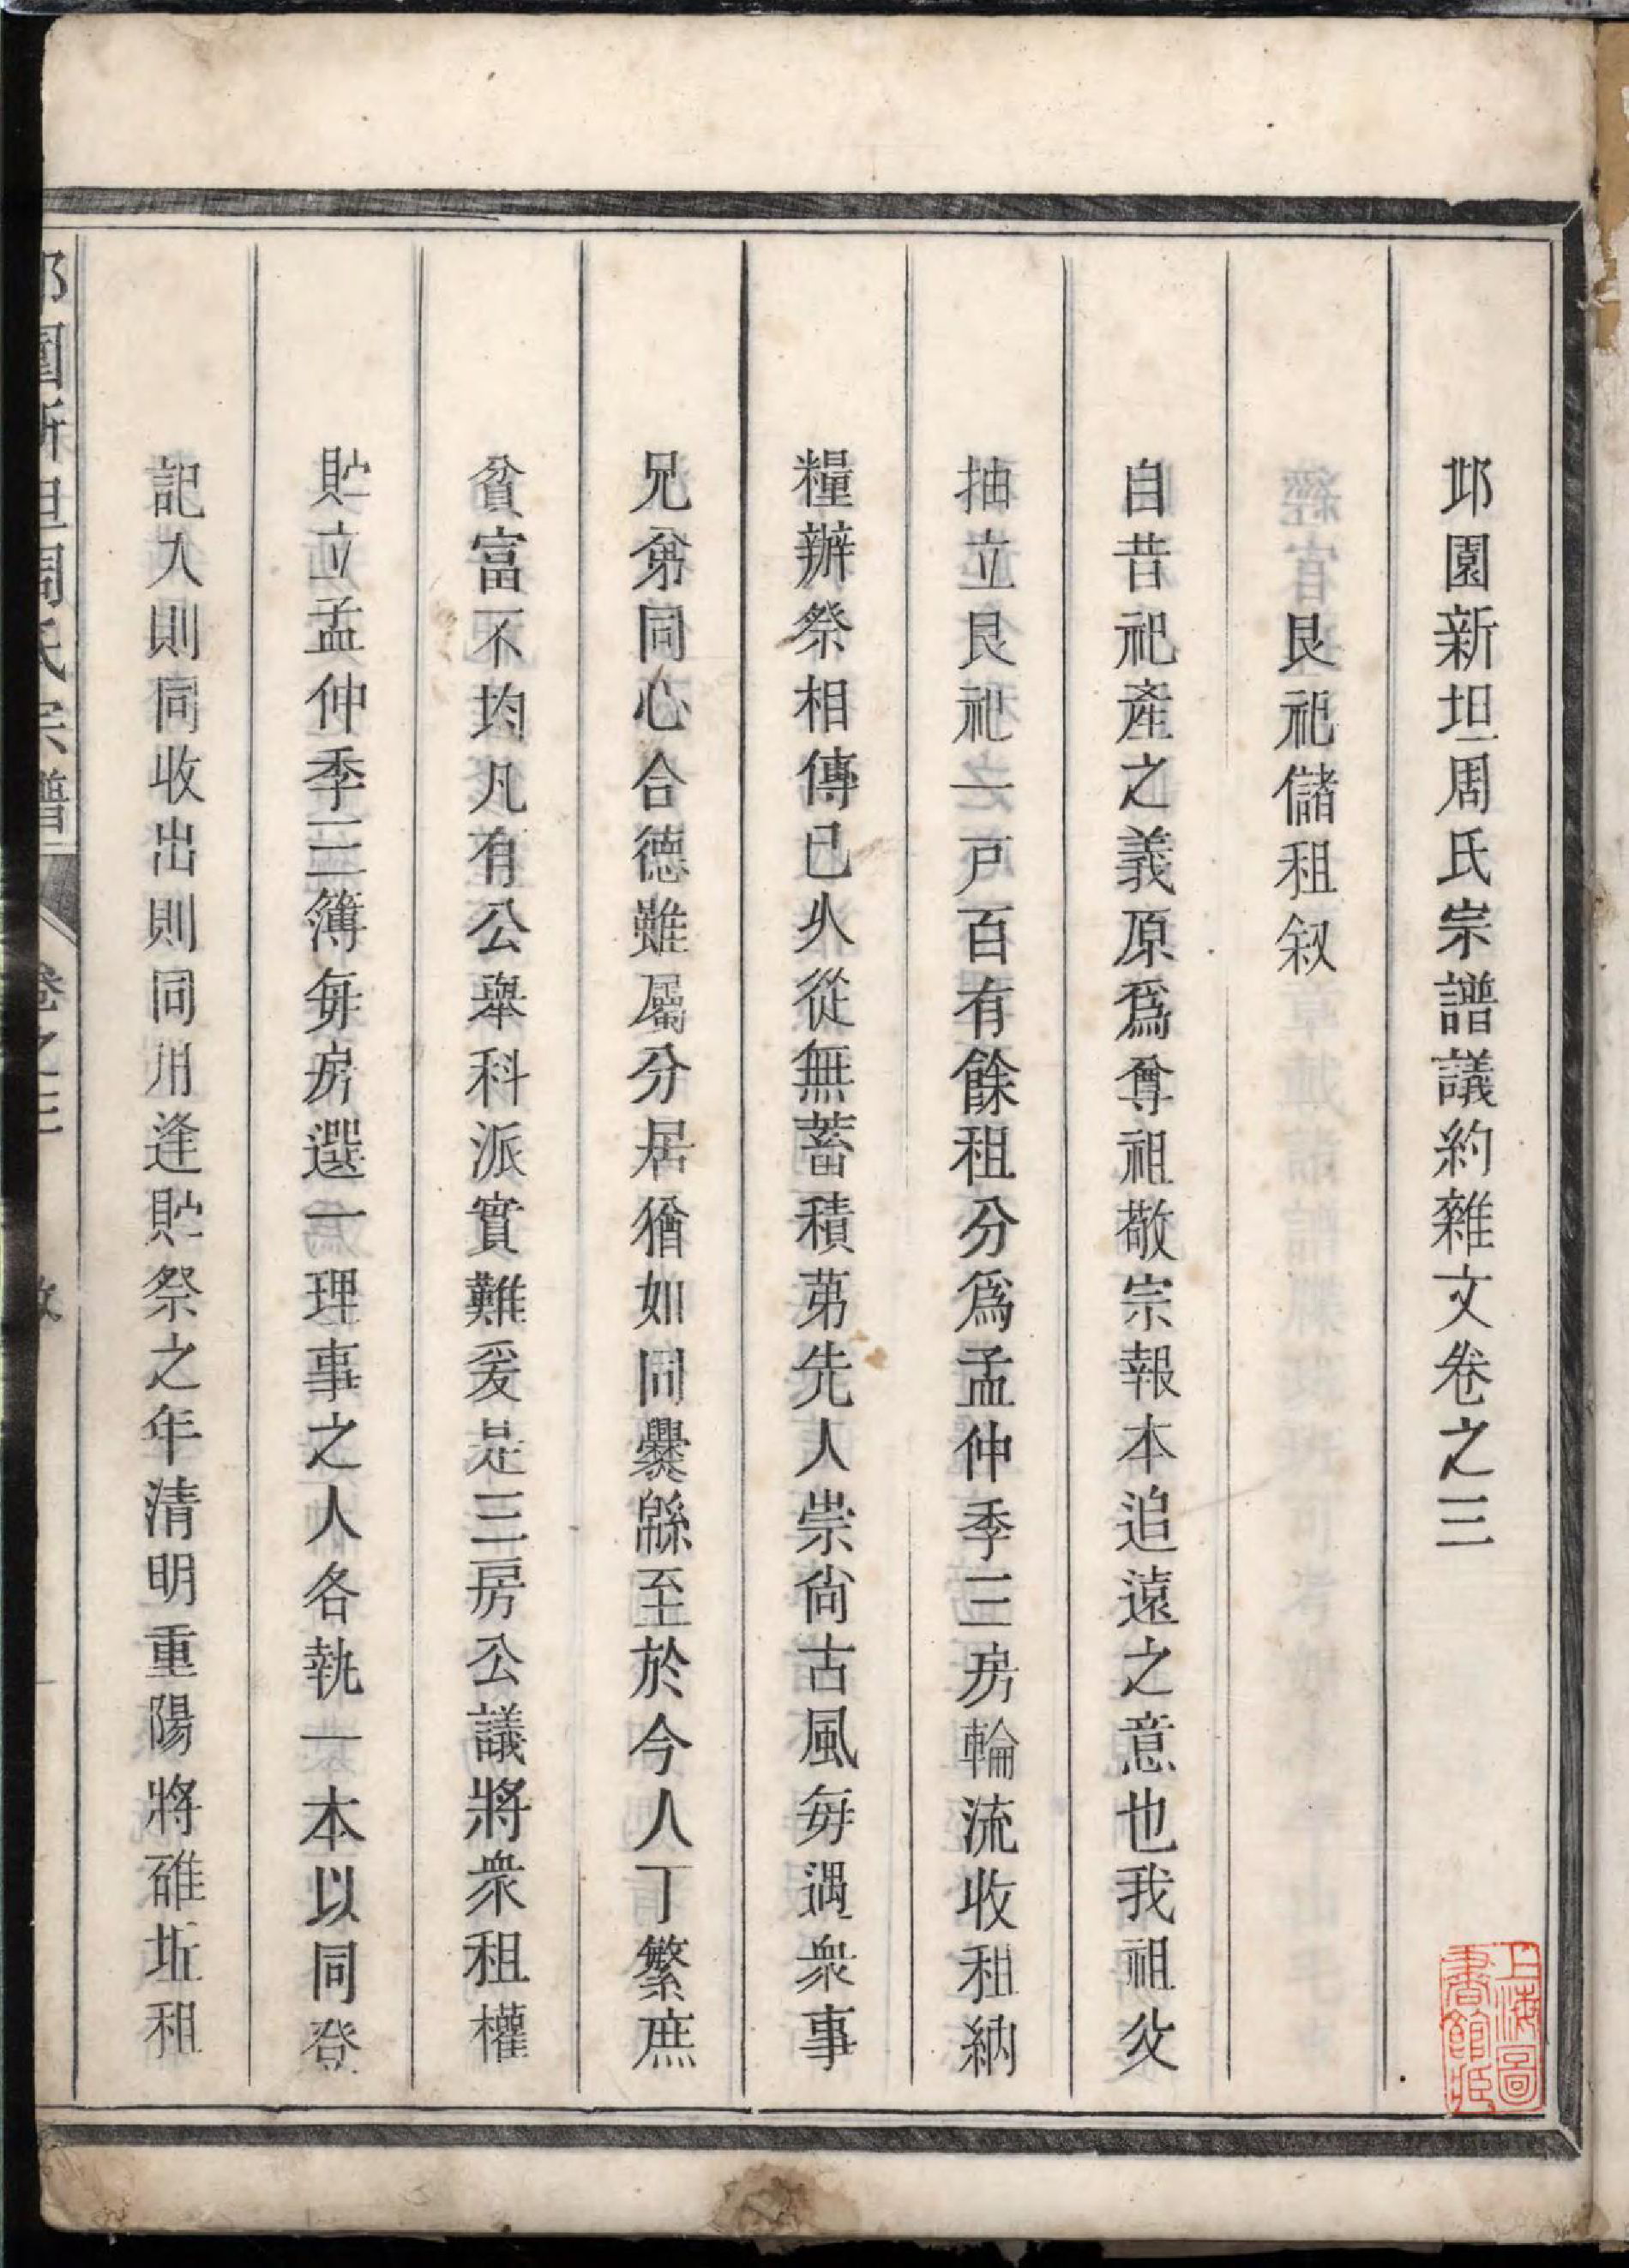 邶園新坦周氏宗譜議約雜文卷之三
艮祀儲租叙
自昔祀產之義原爲尊祖敬宗報本追遠之意也我祖父
抽立艮祀一戸百有餘租分爲孟仲季三房輪流收租納
糧辦祭相傳已乆從無蓄積苐先人崇尙古風每遇衆事
兄弟同心合德雖屬分居猶如同爨緜至於今人丁繁庶
貧富不均凡有公舉科派實難爰是三房公議將衆租權
貯立孟仲季三簿每房選一理事之人各執一本以同登
記入則同收出則同用逢貯祭之年清明重陽將碓坵租
新坦周氏宗譜
卷之三
一
上海圖
書館藏